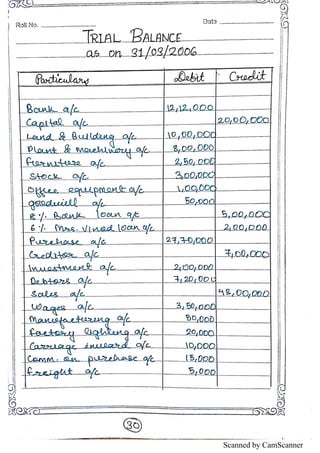 Roll No. Date
TRIAL BALANCE
as on 31/03/2006
Particulars Debit Credit
Bank a/c 12,12,000
Capital a/c 20,00,000
Land & Building a/c 10,00,000
Plant & Machinery a/c 8,00,000
Furniture a/c 2,50,000
Stock a/c 3,00,000
Office equipment a/c 1,00,000
goodwill a/c 50,000
8% Bank loan a/c 5,00,000
6% Mrs. Vinod loan a/c 2,00,000
Purchase a/c 27,70,000
Creditor a/c 7,00,000
Investment a/c 2,00,000
Debtors a/c 7,20,000
Sales a/c 48,00,000
Wages a/c 3,50,000
Manufacturing a/c 50,000
Factory lighting a/c 20,000
Carriage inward a/c 10,000
Comm. on purchase a/c 15,000
freight a/c 5,000
30
Scanned by CamScanner